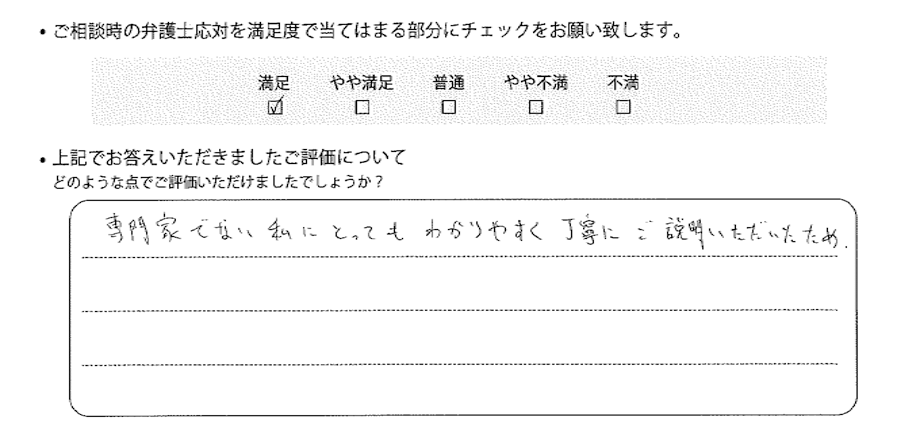 • ご相談時の弁護士応対を満足度で当てはまる部分にチェックをお願い致します。
満足 やや満足 普通 やや不満 不満
☑ ☐ ☐ ☐ ☐
• 上記でお答えいただきましたご評価について
どのような点でご評価いただけましたでしょうか？
専門家でない私にとってもわかりやすく丁寧にご説明いただいたため.